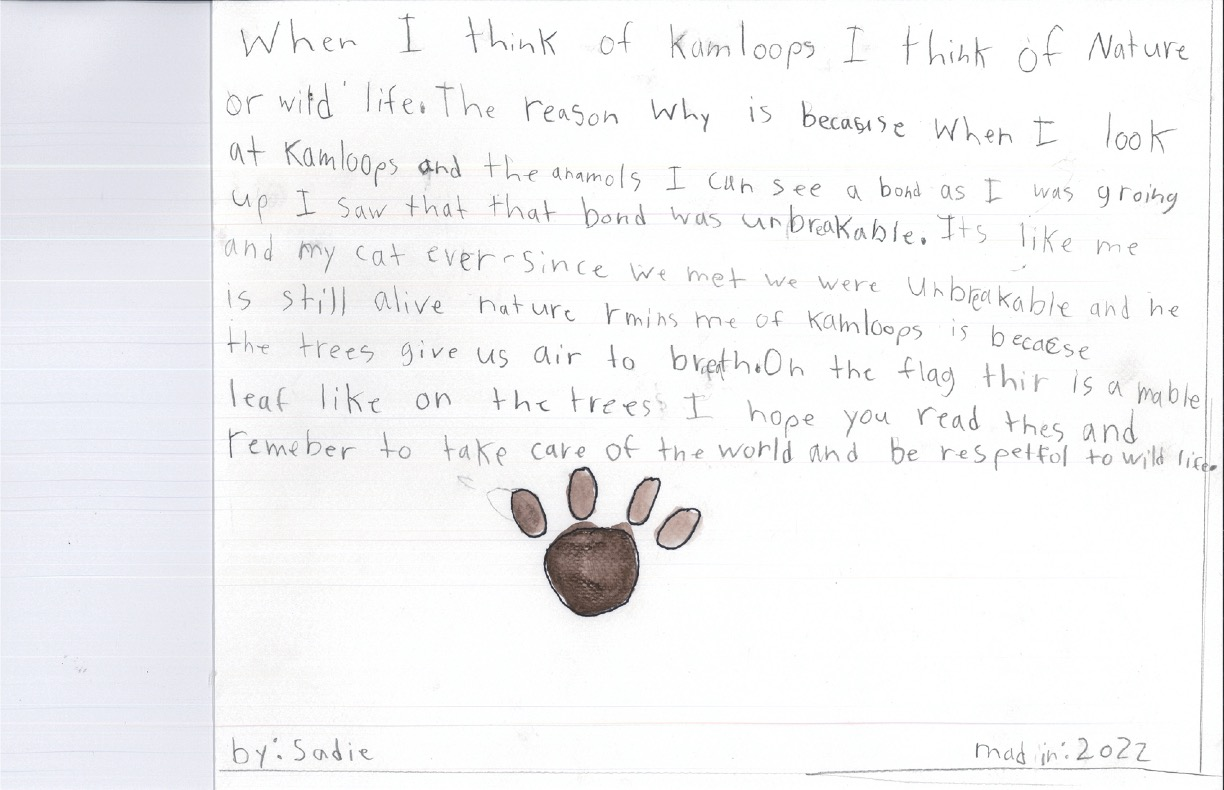 When I think of Kamloops I think of Nature
or wild life. The reason Why is becasuse when I look
at Kamloops and the anamols I can see a bond as I was groing
up I saw that that bond was unbreakable. Its like me
and my cat ever-since we met we were unbreakable and he
is still alive nature rmins me of Kamloops is becacse
the trees give us air to breath. On the flag thir is a mable
leaf like on the trees I hope you read thes and
remeber to take care of the world and be respetfol to wild life.
by: Sadie
mad in: 2022